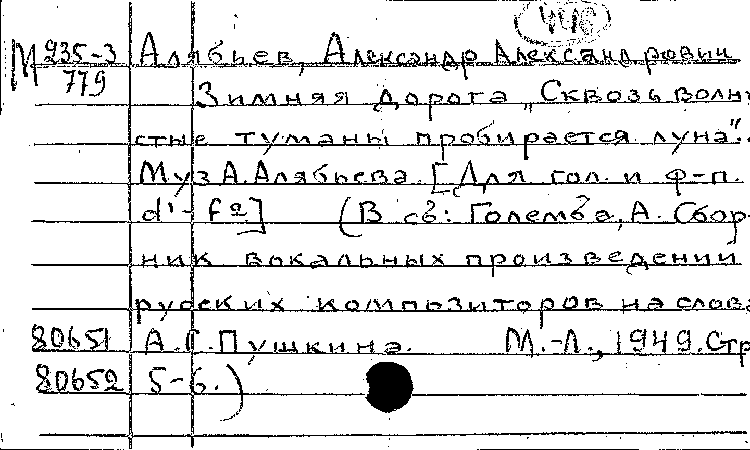 446
М 235-3 Алябьев, Александр Александрович
779 Зимняя дорога „Сквозь волни
стые туманы пробирается луна".
Муз А. Алябьева. [Для гол. и ф-п.
d¹- f²] (В сб: Големба, А. Сбор-
ник вокальных произведений
русских композиторов на слова
80651 А.С. Пушкина. М.-Л., 1949. Стр
80652 5-6.)